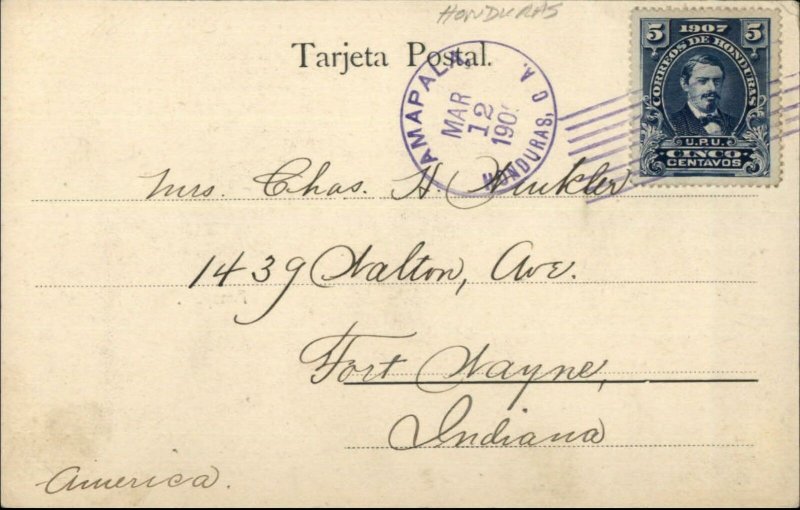 HONDURAS
Tarjeta Postal.
AMAPALA,
MAR
12
190
HONDURAS, C A.
5 1907 5
CORREOS DE HONDURAS
U.P.U.
CINCO
CENTAVOS
Mrs. Chas. H. Winkler
1439 Walton, Ave.
Fort Wayne,
Indiana
America.